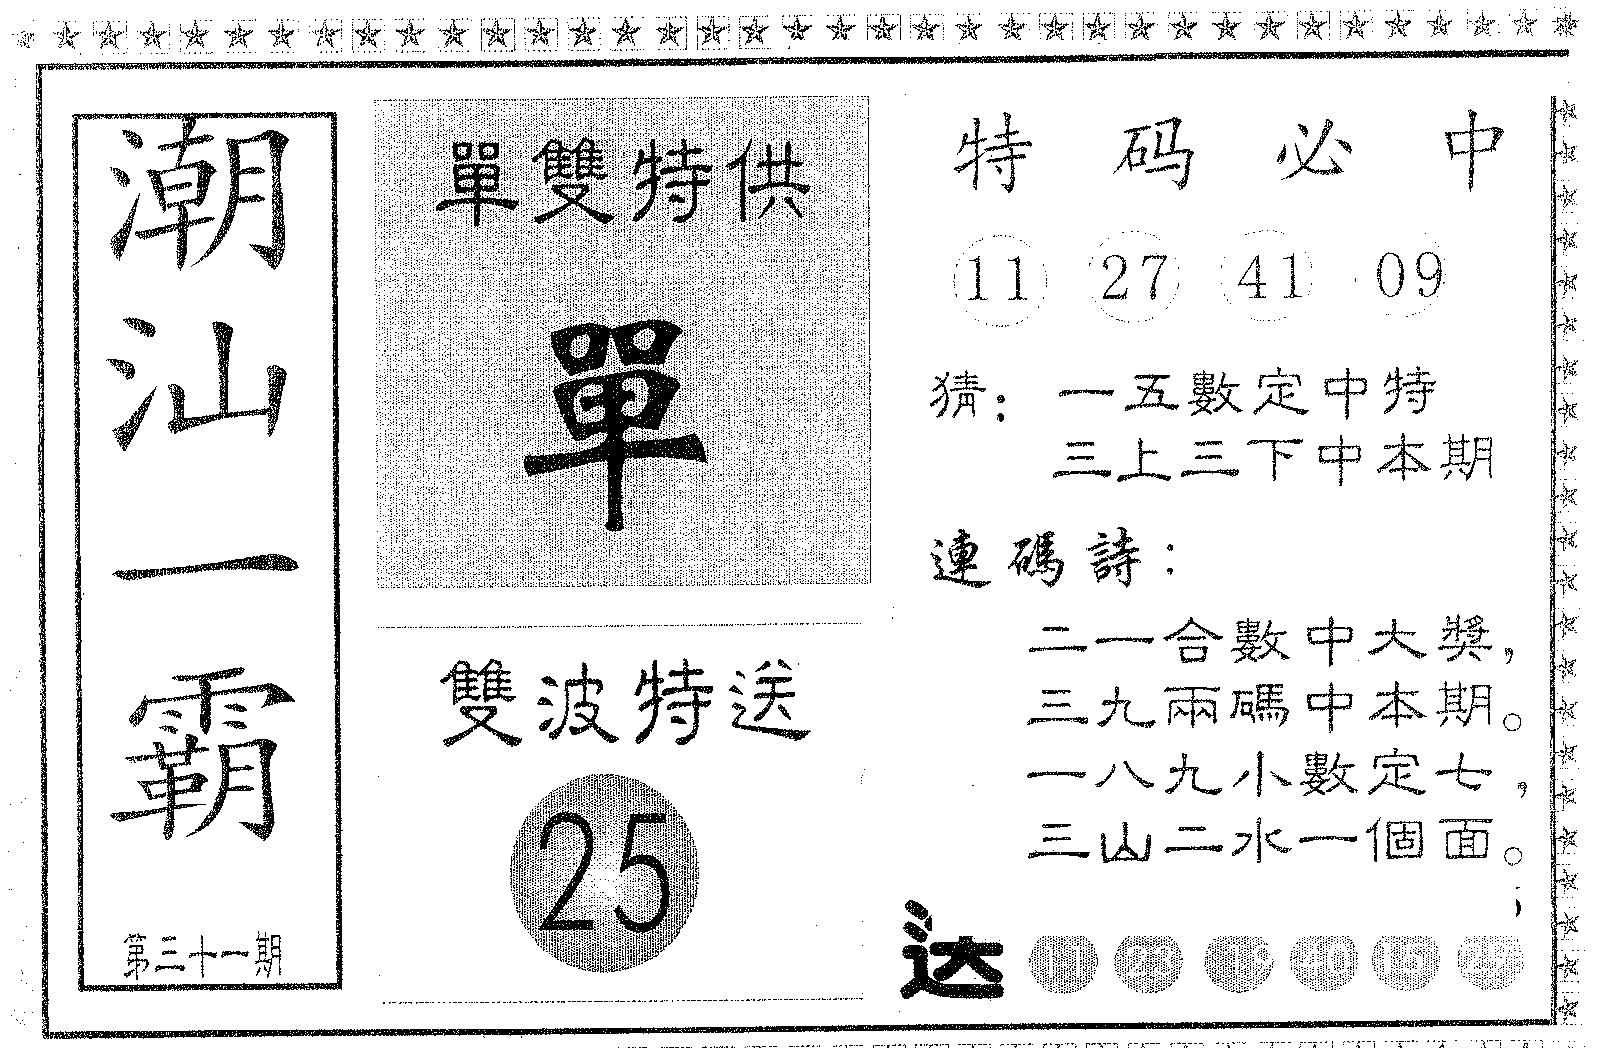 潮汕一霸
第三十一期
單雙特供
單
雙波特送
25
特码必中
11 27 41 09
猜：一五數定中特
三上三下中本期
連碼詩：
二一合數中大獎，
三九兩碼中本期。
一八九小數定七，
三山二水一個面。
送